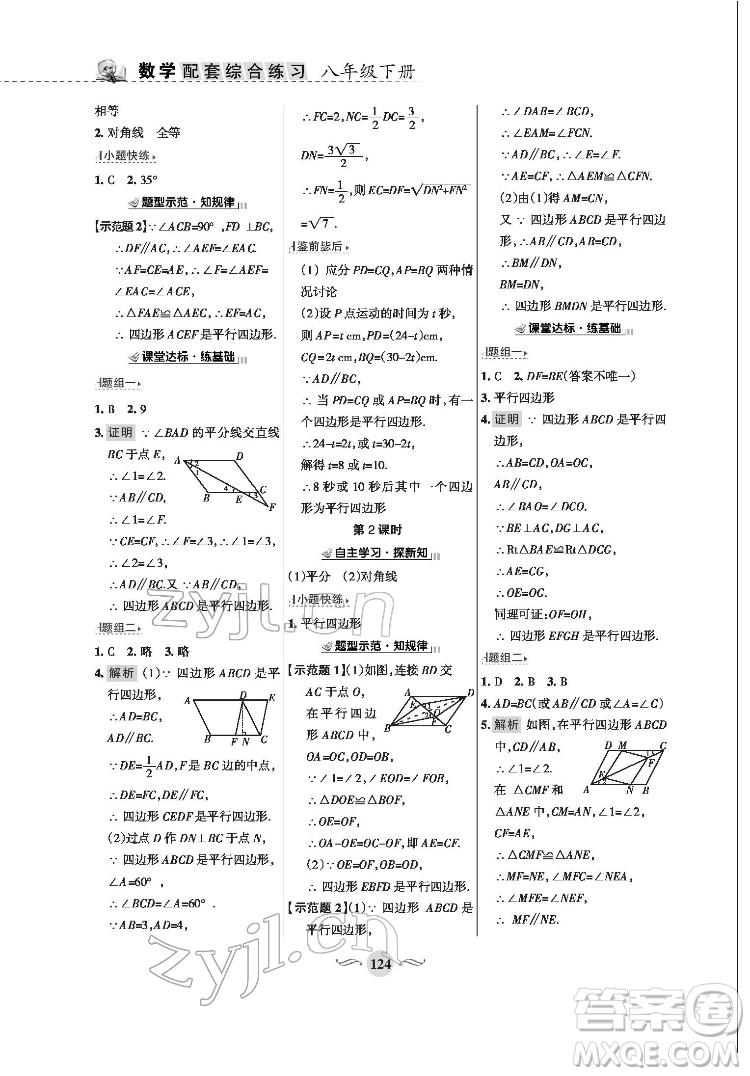 数学 配套综合练习 八年级下册
相等
2. 对角线 全等
小题快练
1. C 2. 35°
题型示范·知规律
【示范题2】∵∠ACB=90°,FD⊥BC,
∴DF∥AC,∴∠AEF=∠EAC.
∵AF=CE=AE,∴∠F=∠AEF=
∠EAC=∠ECA.又∵AE=EA,
∴△FAE≌△AEC,∴AF∥CE,
∴四边形ACEF是平行四边形.
课堂达标·练基础
题组一
1. B 2. 9
3. 证明 ∵∠BAD的平分线交直线
BC于点E,
∴∠1=∠2.
∵AB∥CD,
∴∠1=∠F.
∵CE=CF,∴∠F=∠3,∴∠1=∠3,
∴∠2=∠3,
∴AD∥BC.又∵AB∥CD,
∴四边形ABCD是平行四边形.
题组二
1. C 2. 略 3. 略
4. 解析 (1)∵四边形ABCD是平
行四边形,
∴AD=BC,
AD∥BC,
∵DE=1/2AD,F是BC边的中点,
∴DE=FC,DE∥FC,
∴四边形CEDF是平行四边形.
(2)过点D作DN⊥BC于点N,
∵四边形ABCD是平行四边形,
∠A=60°,
∴∠BCD=∠A=60°,
∵AB=3,AD=4,
∴FC=2,NC=1/2DC=3/2,
DN=3√3/2,
∴FN=1/2,则EC=DF=√DN²+FN²
=√7.
鉴前毖后
(1)应分PD=CQ,AP=BQ两种情
况讨论
(2)设P点运动的时间为t秒,
则AP=t cm,PD=(24-t)cm,
CQ=2t cm,BQ=(30-2t)cm.
∵AD∥BC,
∴当PD=CQ或AP=BQ时,有一
个四边形是平行四边形.
∴24-t=2t,或t=30-2t.
解得t=8或t=10.
∴8秒或10秒后其中一个四边
形为平行四边形
第2课时
自主学习·探新知
(1)平分 (2)对角线
小题快练
1. 平行四边形
题型示范·知规律
【示范题1】(1)如图,连接BD交
AC于点O,
在平行四边
形ABCD中,
OA=OC,OB=OD,
∵∠1=∠2,∠EOD=∠FOB,
∴△DOE≌△BOF,
∴OE=OF,
∴OA-OE=OC-OF,∴AE=CF.
(2)∵OE=OF,OB=OD,
∴四边形EBFD是平行四边形.
【示范题2】(1)∵四边形ABCD是
平行四边形,
∴∠DAB=∠BCD,
∴∠EAM=∠FCN.
∵AD∥BC,∴∠E=∠F.
∵AE=CF,∴△AEM≌△CFN.
(2)由(1)得AM=CN,
又∵四边形ABCD是平行四边
形,∴AB∥CD,AB=CD,
∴BM∥DN,
BM=DN,
∴四边形BMDN是平行四边形.
课堂达标·练基础
题组一
1. C 2. DF=BE(答案不唯一)
3. 平行四边形
4. 证明 ∵四边形ABCD是平行四
边形,
∴AB=CD,OA=OC,
∴∠BAO=∠DCO.
∵BE⊥AC,DG⊥AC,
∴Rt△BAE≌Rt△DCG,
∴AE=CG,
∴OE=OG.
同理可证:OF=OH,
∴四边形EFGH是平行四边形.
题组二
1. D 2. B 3. B
4. AD=BC(或AB∥CD或∠A=∠C)
5. 解析 如图,在平行四边形ABCD
中,CD∥AB,
∴∠1=∠2.
在△CMF和
△ANE中,CM=AN,∠1=∠2,
CF=AE,
∴△CMF≌△ANE,
∴MF=NE,∠MFC=∠NEA,
∴∠MFE=∠NEF,
∴MF∥NE.
124
zyjl.cn
zyjl.cn
答案圈
MXQE.COM